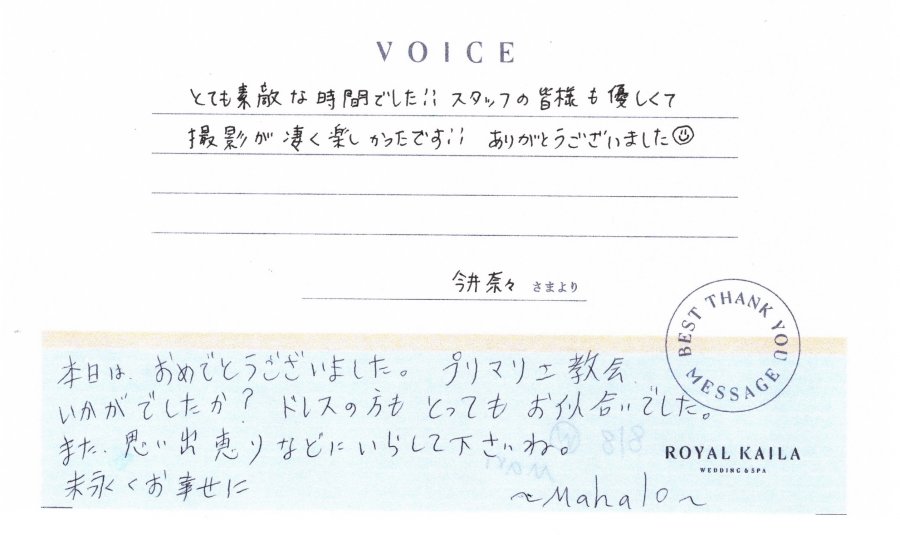 VOICE
とても素敵な時間でした!! スタッフの皆様も優しくて
撮影が凄く楽しかったです!! ありがとうございました☺
今井奈々 さまより
BEST THANK YOU MESSAGE
本日は、おめでとうございました。プリマリエ教会
いかがでしたか? ドレスの方もとってもお似合いでした。
また、思い出恵りなどにいらして下さいね。
末永くお幸せに
~Mahalo~
ROYAL KAILA
WEDDING & SPA